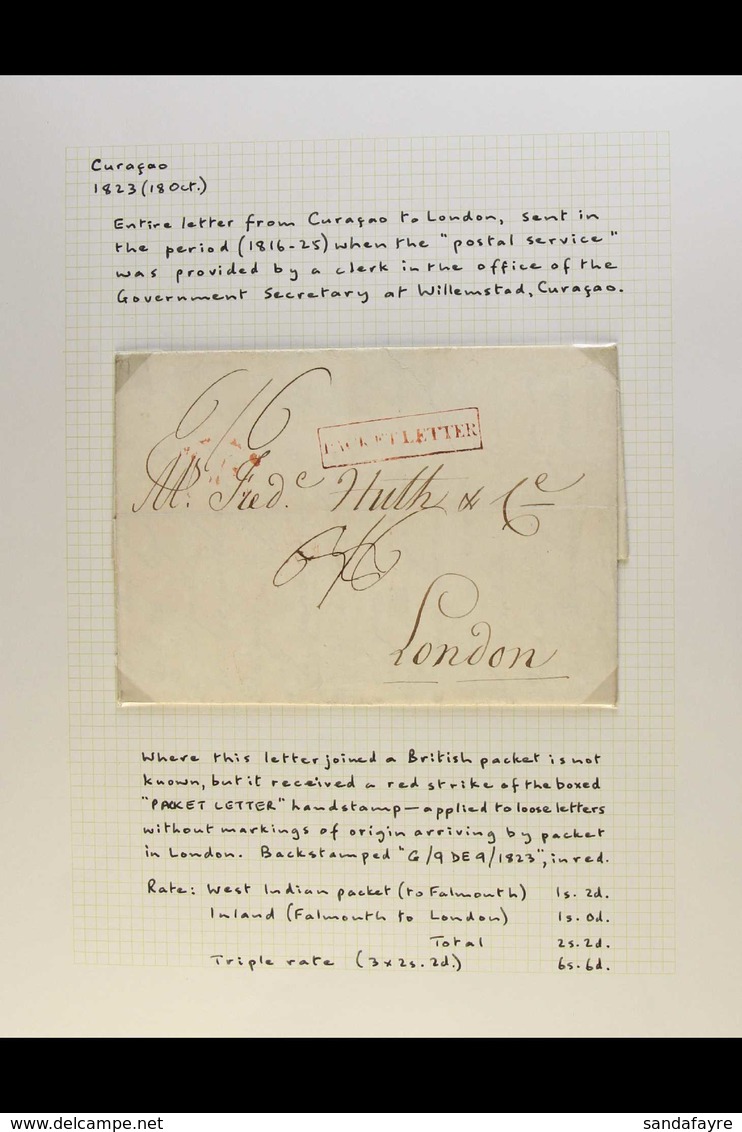 Curaçao
1823 (18 Oct.)
Entire letter from Curaçao to London, sent in
the period (1816-25) when the "postal service"
was provided by a clerk in the office of the
Government Secretary at Willemstad, Curaçao.
6/6
PACKET LETTER
Mr. Fredc. Huth & Ce
6/6
London
Where this letter joined a British packet is not
known, but it received a red strike of the boxed
"PACKET LETTER" handstamp—applied to loose letters
without markings of origin arriving by packet
in London. Backstamped "G/9 DE 9/1823", in red.
Rate: West Indian packet (to Falmouth) 1s. 2d.
Inland (Falmouth to London) 1s. 0d.
Total 2s. 2d.
Triple rate (3 x 2s. 2d.) 6s. 6d.
Delcampe.net Commercial Item
sandafayre